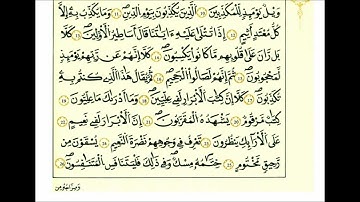 وَيْلٌ يَوْمَئِذٍ لِّلْمُكَذِّبِينَ ١٠ ٱلَّذِينَ يُكَذِّبُونَ بِيَوْمِ ٱلدِّينِ ١١ وَمَا يُكَذِّبُ بِهِۦٓ إِلَّا
كُلُّ مُعْتَدٍ أَثِيمٍ ١٢ إِذَا تُتْلَىٰ عَلَيْهِ ءَايَٰتُنَا قَالَ أَسَٰطِيرُ ٱلْأَوَّلِينَ ١٣ كَلَّا
بَلْ رَانَ عَلَىٰ قُلُوبِهِم مَّا كَانُوا۟ يَكْسِبُونَ ١٤ كَلَّآ إِنَّهُمْ عَن رَّبِّهِمْ يَوْمَئِذٍ
لَّمَحْجُوبُونَ ١٥ ثُمَّ إِنَّهُمْ لَصَالُوا۟ ٱلْجَحِيمِ ١٦ ثُمَّ يُقَالُ هَٰذَا ٱلَّذِى كُنتُم بِهِۦ
تُكَذِّبُونَ ١٧ كَلَّآ إِنَّ كِتَٰبَ ٱلْأَبْرَارِ لَفِى عِلِّيِّينَ ١٨ وَمَآ أَدْرَىٰكَ مَا عِلِّيُّونَ ١٩
كِتَٰبٌ مَّرْقُومٌ ٢٠ يَشْهَدُهُ ٱلْمُقَرَّبُونَ ٢١ إِنَّ ٱلْأَبْرَارَ لَفِى نَعِيمٍ ٢٢
عَلَى ٱلْأَرَآئِكِ يَنظُرُونَ ٢٣ تَعْرِفُ فِى وُجُوهِهِمْ نَضْرَةَ ٱلنَّعِيمِ ٢٤ يُسْقَوْنَ مِن
رَّحِيقٍ مَّخْتُومٍ ٢٥ خِتَٰمُهُۥ مِسْكٌ وَفِى ذَٰلِكَ فَلْيَتَنَافَسِ ٱلْمُتَنَٰفِسُونَ ٢٦
وَمِزَاجُهُۥ مِن